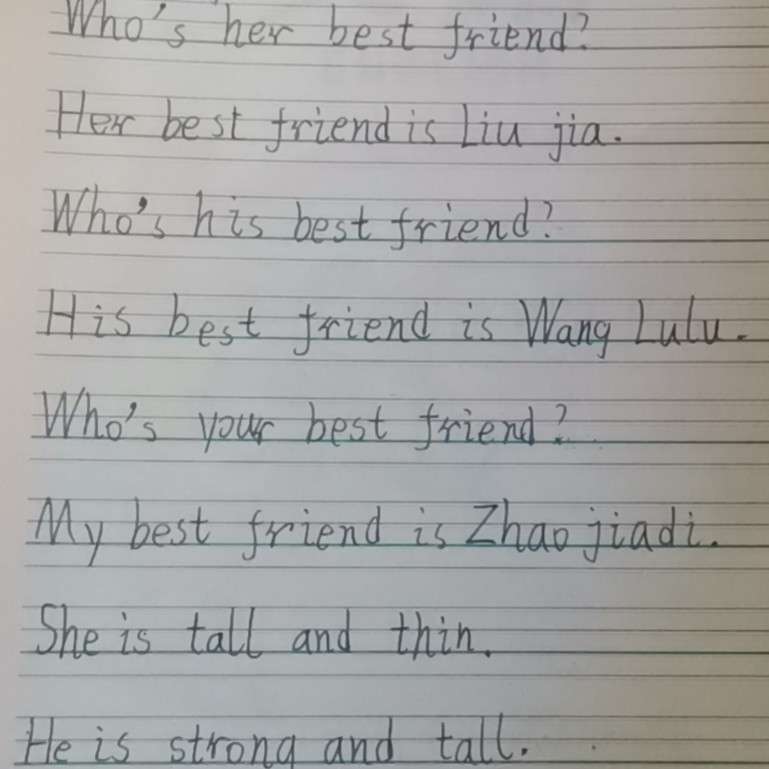 Who's her best friend?
Her best friend is Liu jia.
Who's his best friend?
His best friend is Wang Lulu.
Who's your best friend?
My best friend is Zhao jiadi.
She is tall and thin.
He is strong and tall.